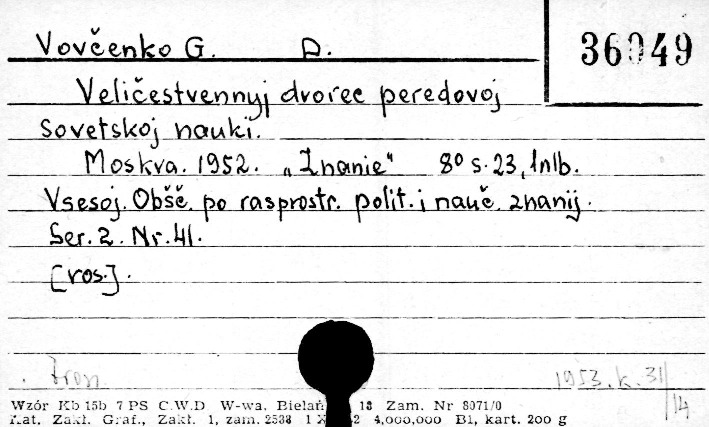 Vovčenko G. D.
36049
Veličestvennyj dvorec peredovoj
sovetskoj nauki.
Moskva. 1952. „Znanie" 8º s. 23, 1nlb.
Vsesoj. Obšč. po rasprostr. polit. i nauč. znanij.
Ser. 2. Nr. 41.
[ros.].
1953. k. 31/14
Wzór Kb 15b 7 PS C.W.D. W-wa, 18 Zam. Nr 8071/0
Kat. Zakł. Graf., Zakł. 1, zam. 2538 4,000,000 B1, kart. 200 g